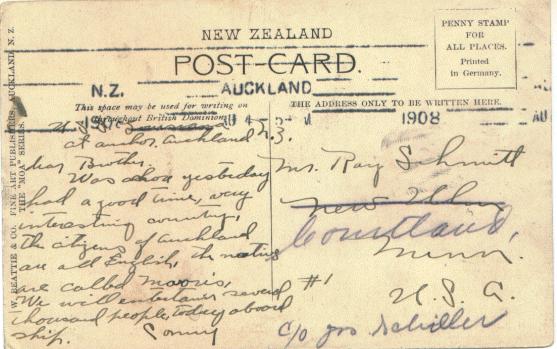 NEW ZEALAND
POST-CARD.
PENNY STAMP
FOR
ALL PLACES.
Printed
in Germany.
N.Z.
AUCKLAND
1908
AU
This space may be used for writing on
throughout British Dominion
THE ADDRESS ONLY TO BE WRITTEN HERE.
W. BEATTIE & CO. FINE ART PUBLISHERS, AUCKLAND, N.Z.
THE "MOA" SERIES.
at anchor, Auckland N.Z.
Dear Brother.
Was ashore yesterday
had a good time, very
interesting country,
the citizens of Auckland
are all English, the natives
are called Maoris,
We will entertain several
thousand people today aboard
ship.
Mr. Ray Schmitt
New Ulm
Courtland,
Minn.
#1
U.S.A.
c/o Jos Schiller